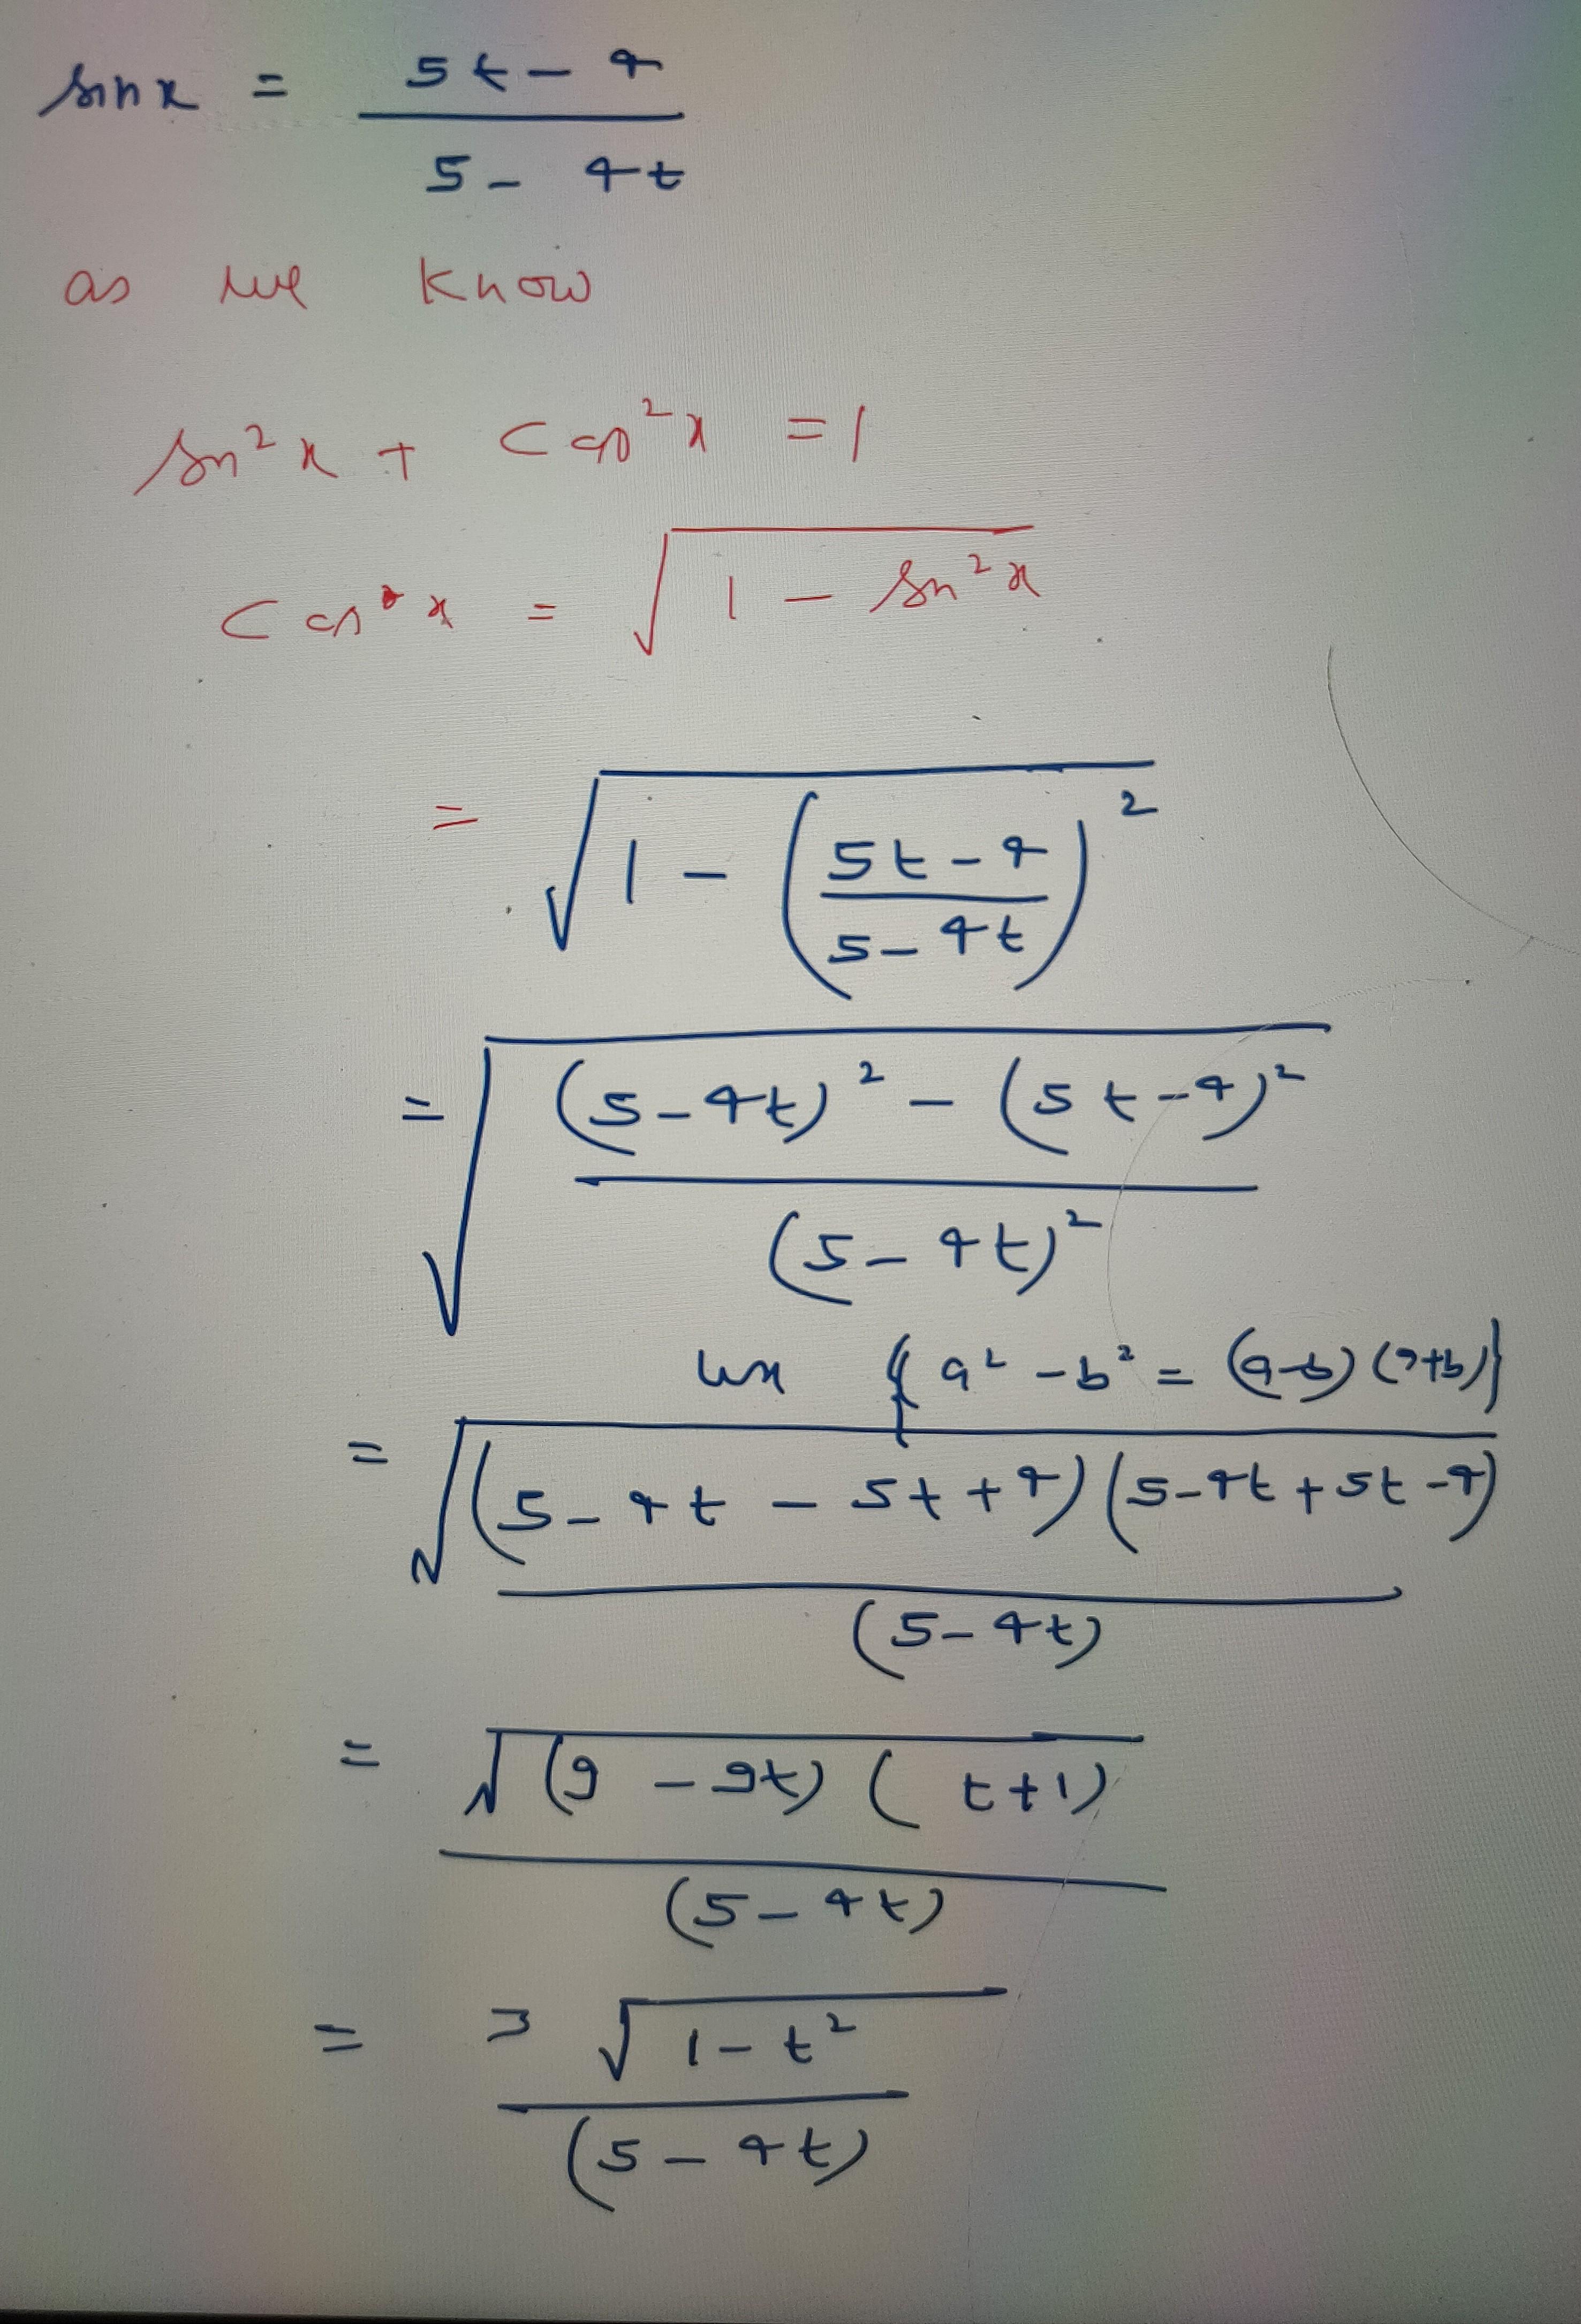 sinx = 5t-4 / 5-4t
as we know
sin²x + cos²x = 1
cos x = √(1 - sin²x)
= √(1 - (5t-4 / 5-4t)²)
= √((5-4t)² - (5t-4)² / (5-4t)²)
use {a² - b² = (a-b)(a+b)}
= √(5-4t - 5t+4)(5-4t+5t-4) / (5-4t)
= √(9 - 9t)(t+1) / (5-4t)
= 3√1-t² / (5-4t)